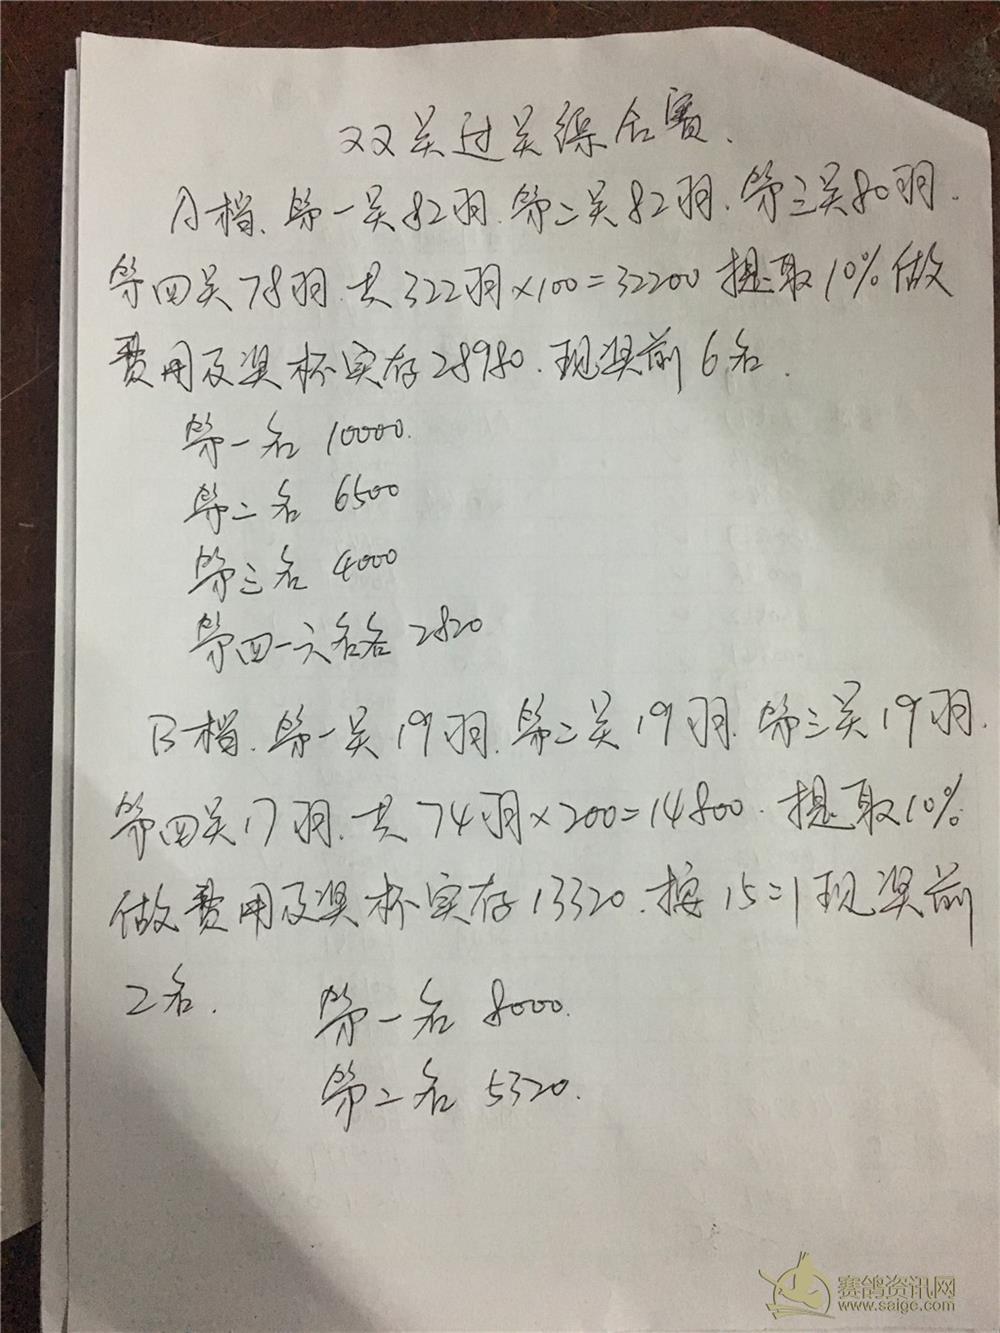 双关过关综合赛.
A档.第一关82羽.第二关82羽.第三关80羽.
第四关78羽.共322羽×100=32200 提取10%做
费用及奖杯实存28980.现奖前6名.
第一名 10000.
第二名 6500
第三名 4000
第四一六名各 2820
B档.第一关19羽.第二关19羽.第三关19羽.
第四关17羽.共74羽×200=14800.提取10%
做费用及奖杯实存13320.按15=1现奖前
2名.
第一名 8000.
第二名 5320.
赛鸽资讯网
www.saigc.com